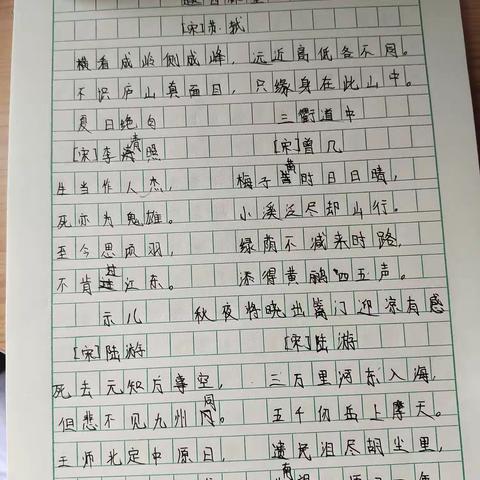 [宋]苏轼
横看成岭侧成峰，远近高低各不同。
不识庐山真面目，只缘身在此山中。
夏日绝句
[宋]李清照
生当作人杰，
死亦为鬼雄。
至今思项羽，
不肯过江东。
三衢道中
[宋]曾几
梅子黄时日日晴，
小溪泛尽却山行。
绿荫不减来时路，
添得黄鹂四五声。
示儿
[宋]陆游
死去元知万事空，
但悲不见九州同。
王师北定中原日，
秋夜将晓出篱门迎凉有感
[宋]陆游
三万里河东入海，
五千仞岳上摩天。
遗民泪尽胡尘里，